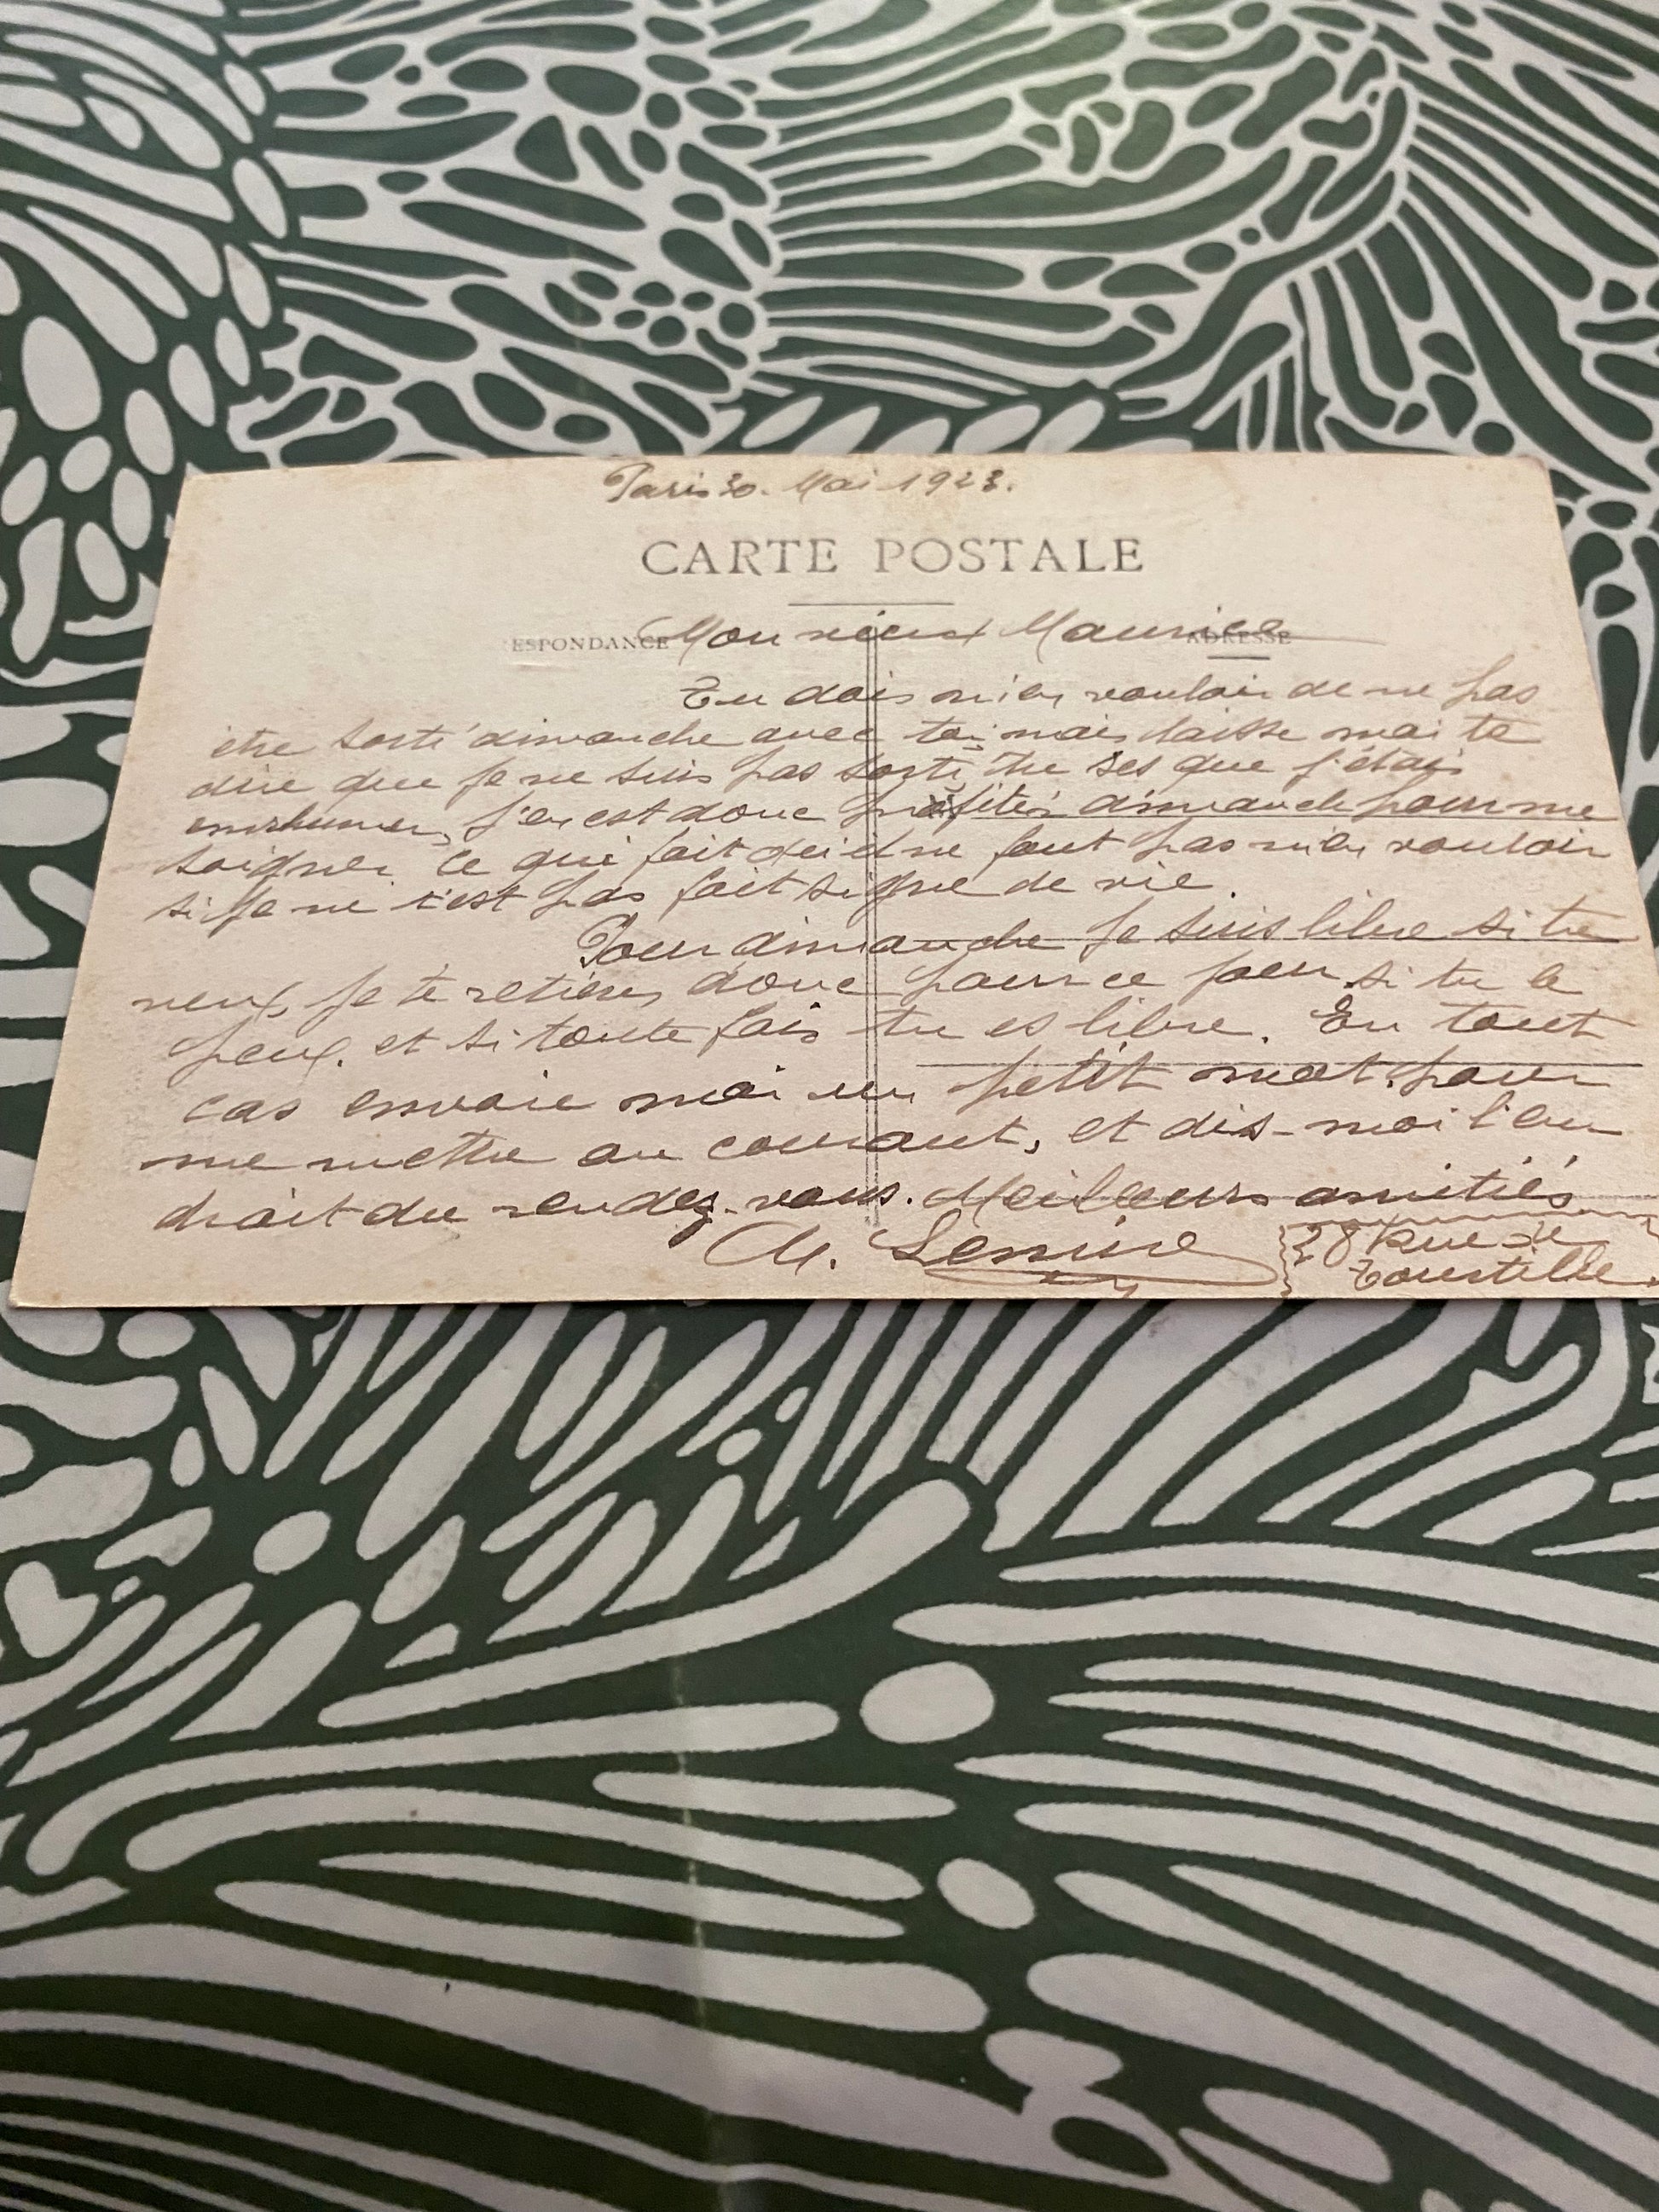 Paris 30. Mai 1923.
CARTE POSTALE
ESPONDANCE
ADRESSE
Mon vieux Maurice
Tu dois m'en vouloir de ne pas
être sorti dimanche avec toi, mais laisse moi te
dire que je ne suis pas sorti, tu ses que j'étais
enrhumer, j'en est donc profiter dimanche pour me
soigner, ce qui fait qu'il ne faut pas m'en vouloir
si je ne t'est pas fait signe de vie.
Pour dimanche je suis libre si tu
veux, je te retiens donc pour ce jour, si tu le
peux. et si toute fois tu es libre. En tout
cas envoie moi un petit mot pour
me mettre au courant, et dis-moi l'en
droit du rendez-vous. Meilleurs amitiés
28 Rue de
Tourtille.